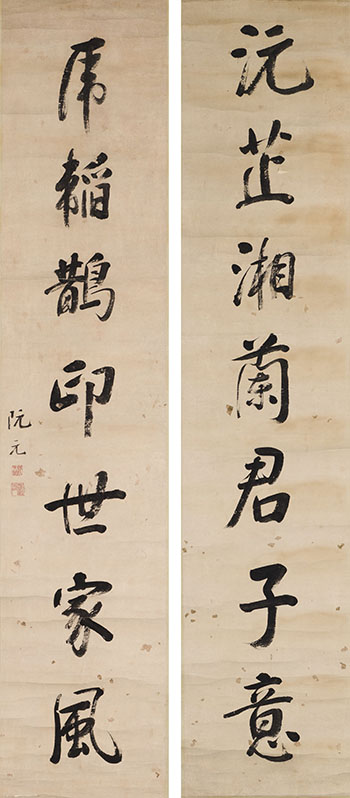 沅芷湘蘭君子意
虎韜鵲印世家風
阮元